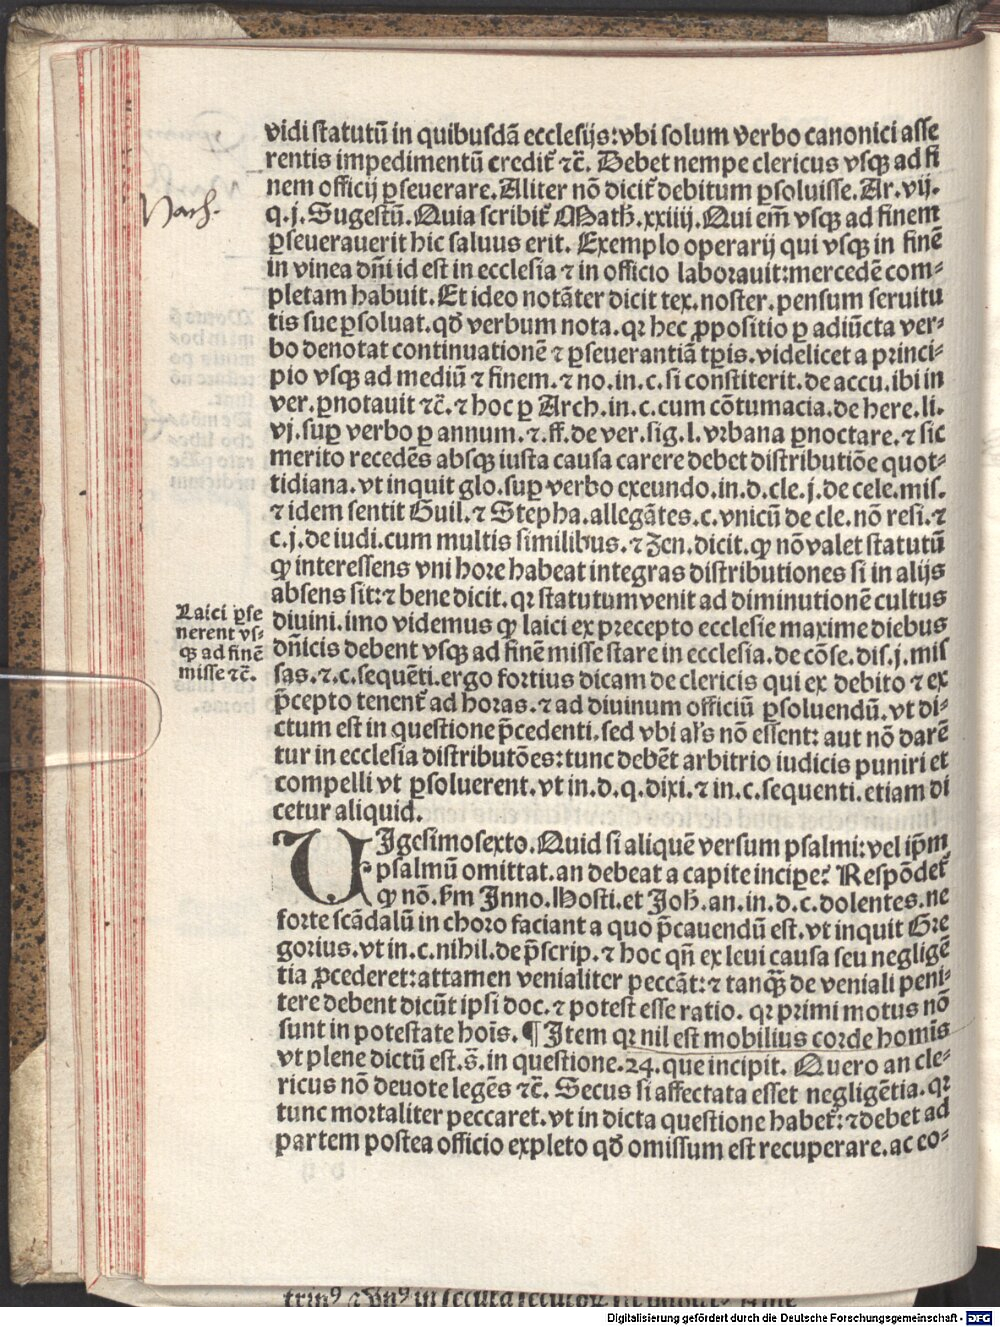 vidi statutū in quibusdā ecclesijs:vbi solum verbo canonici asse
rentis impedimentū credit̄ ⁊c̄. Debet nempe clericus vsqꝫ ad fi
nem officij ꝑseuerare. Aliter nō dicit̄ debitum ꝑsoluisse. Ar. vij.
q.j. Sugestū. Quia scribit̄ Math̄. xxiiij. Qui em̄ vsqꝫ ad finem
ꝑseuerauerit hic saluus erit. Exemplo operarij qui vsqꝫ in finē
in vinea dn̄i id est in ecclesia ⁊ in officio laborauit:mercedē com⸗
pletam habuit. Et ideo notāter dicit tex. noster. pensum seruitu
tis sue ꝑsoluat. qđ verbum nota. qꝛ hec ꝓpositio ꝑ adiūcta ver⸗
bo denotat continuationē ⁊ ꝑseuerantiā tꝑis. videlicet a princi⸗
pio vsqꝫ ad mediū ⁊ finem. ⁊ no. in. c. si constiterit. de accu. ibi in
ver. ꝑnotauit ⁊c̄. ⁊ hoc ꝑ Arch. in. c. cum cōtumacia. de here. li.
vj. suꝑ verbo ꝑ annum. ⁊. ff. de ver. sig. l. vrbana ꝑnoctare. ⁊ sic
merito recedēs absqꝫ iusta causa carere debet distributiōe quot⸗
tidiana. vt inquit glo. suꝑ verbo exeundo. in. d. cle. j. de cele. mis.
⁊ idem sentit Guil. ⁊ Stepha. allegātes. c. vnicū de cle. nō resi. ⁊
c. j. de iudi. cum multis similibus. ⁊ Zen. dicit. ꝙ nō valet statutū
ꝙ interessens vni hore habeat integras distributiones si in alijs
absens sit: ⁊ bene dicit. qꝛ statutum venit ad diminutionē cultus
diuini. imo videmus ꝙ laici ex precepto ecclesie maxime diebus
dn̄icis debent vsqꝫ ad finē misse stare in ecclesia. de cōse. dis. j. mis
sas. ⁊. c. sequēti. ergo fortius dicam de clericis qui ex debito ⁊ ex
p̄cepto tenent̄ ad horas. ⁊ ad diuinum officiū ꝑsoluendū. vt di⸗
ctum est in questione p̄cedenti. sed vbi al's nō essent: aut nō darē
tur in ecclesia distributōes: tunc debēt arbitrio iudicis puniri et
compelli vt ꝑsoluerent. vt in. d. q. dixi. ⁊ in. c. sequenti. etiam di
cetur aliquid.
VIgesimosexto. Quid si aliquē versum psalmi: vel ip̄m
psalmū omittat. an debeat a capite incipe? Respōdet̄
ꝙ nō. fm̄ Inno. Hosti. et Joh̄. an. in. d. c. dolentes. ne
forte scādalū in choro faciant a quo p̄cauendū est. vt inquit Gre
gorius. vt in. c. nihil. de p̄scrip. ⁊ hoc qn̄ ex leui causa seu negligē
tia ꝓcederet: attamen venialiter peccāt: ⁊ tanqꝫ̄ de veniali peni⸗
tere debent dicūt ipsi doc. ⁊ potest esse ratio. qꝛ primi motus nō
sunt in potestate hoīs. ¶ Item qꝛ nil est mobilius corde homīs
vt plene dictū est. s̄. in questione. 24. que incipit. Quero an cle⸗
ricus nō deuote legēs ⁊c̄. Secus si affectata esset negligētia. qꝛ
tunc mortaliter peccaret. vt in dicta questione habet̄: ⁊ debet ad
partem postea officio expleto qđ omissum est recuperare. ac eo⸗
Math.
Laici ꝑse
nerent vs⸗
qꝫ ad finē
misse ⁊c̄.
Digitalisierung gefördert durch die Deutsche Forschungsgemeinschaft - DFG